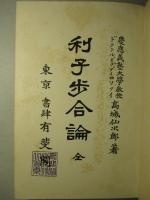 慶應義塾大學教授
ドクトル、オブ、フィロソフイー
高城仙次郎著
利子步合論 全
東京 書肆 有斐